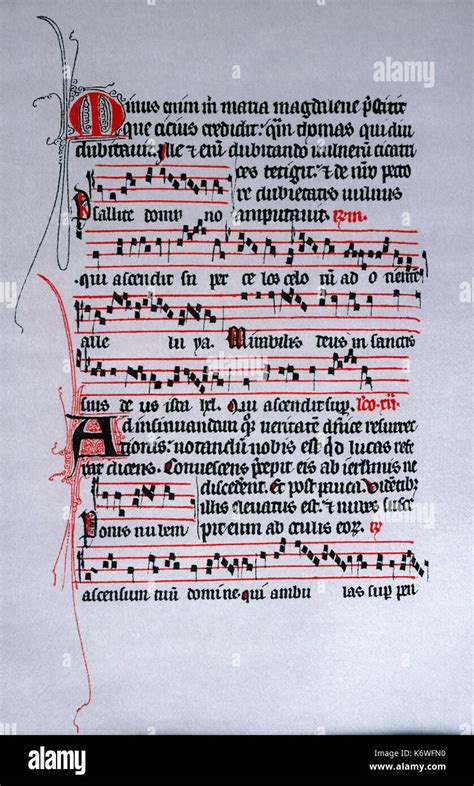 Minus enim m̄ maria magdalene p̄stitit
que cicius credidit: qm̄ thomas qui diu
dubitavit. Ille & enī dubitando vulnerū cicatri
ces tetigit: & de nr̄o pecto
re dubietatis vulnus
Psallite domi no amputavit.
qui ascendit sup er ce los celo rū ad o rientē
alle lu ya. Mirabilis deus in sanctis
suis de us isrl ip̄e. Qui ascendit sup.
Ad insinuandum q̄ veritatē dn̄ice resurrec
tionis: notandū nobis est qd̄ lucas refe
rat dicens. Convescens p̄cepit eis ab ierl̄imis ne
discederēt. Et post pauca. Videntibꝫ
illis elevatus est: & nubes susce
Ponis nubem pit eum ab oculis eorꝫ
ascensum tuū domine. qui ambu las sup pen
alamy
Image ID: K6WFN0
www.alamy.com